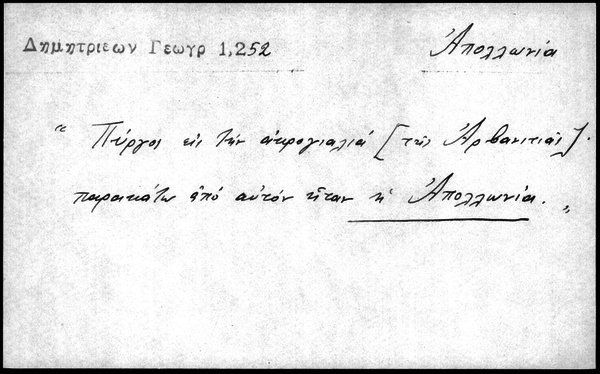 Δημητριεων Γεωγρ 1,252
Ἀπολλωνία
" Πύργοι εις την ακρογιαλιά [της Ἀρβανιτιάς].
παρακάτω ἀπό αὐτόν ἦταν ἡ Ἀπολλωνία. "